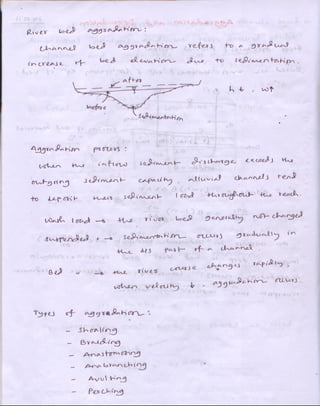 River bed aggradation :
Channel bed aggradation refers to a gradual
increase of bed elevation due to sedimentation.
after
h↓, w↑
before
Sedimentation
Aggradation process :
when the inflow sediment discharge exceeds the
outgoing sediment capacity, alluvial channels tend
to deposit their sediment load throughout the reach.
Wash load → the river bed generally not changed
Suspended " → Sedimentation occurs gradually in
the d/s part of a channel
Bed " → the river course changes rapidly;
when velocity ↓, aggradation occurs.
Types of aggradation :
- Shoaling
- Braiding
- Anastomosing
- Anabranching
- Avulting
- Perching